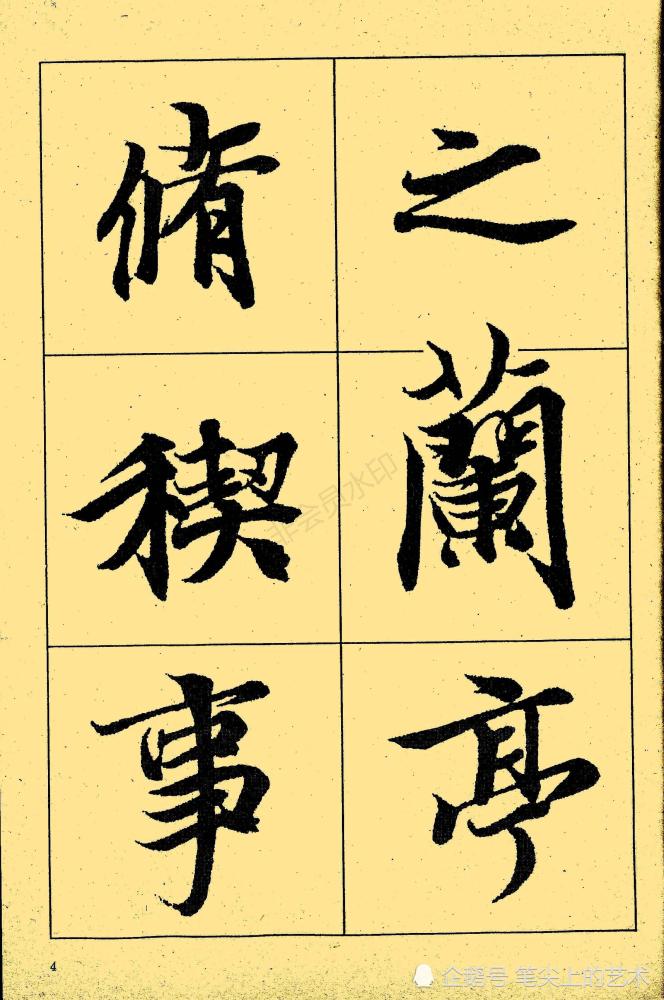 之蘭亭
脩稧事
非会员水印
4
企鹅号 笔尖上的艺术